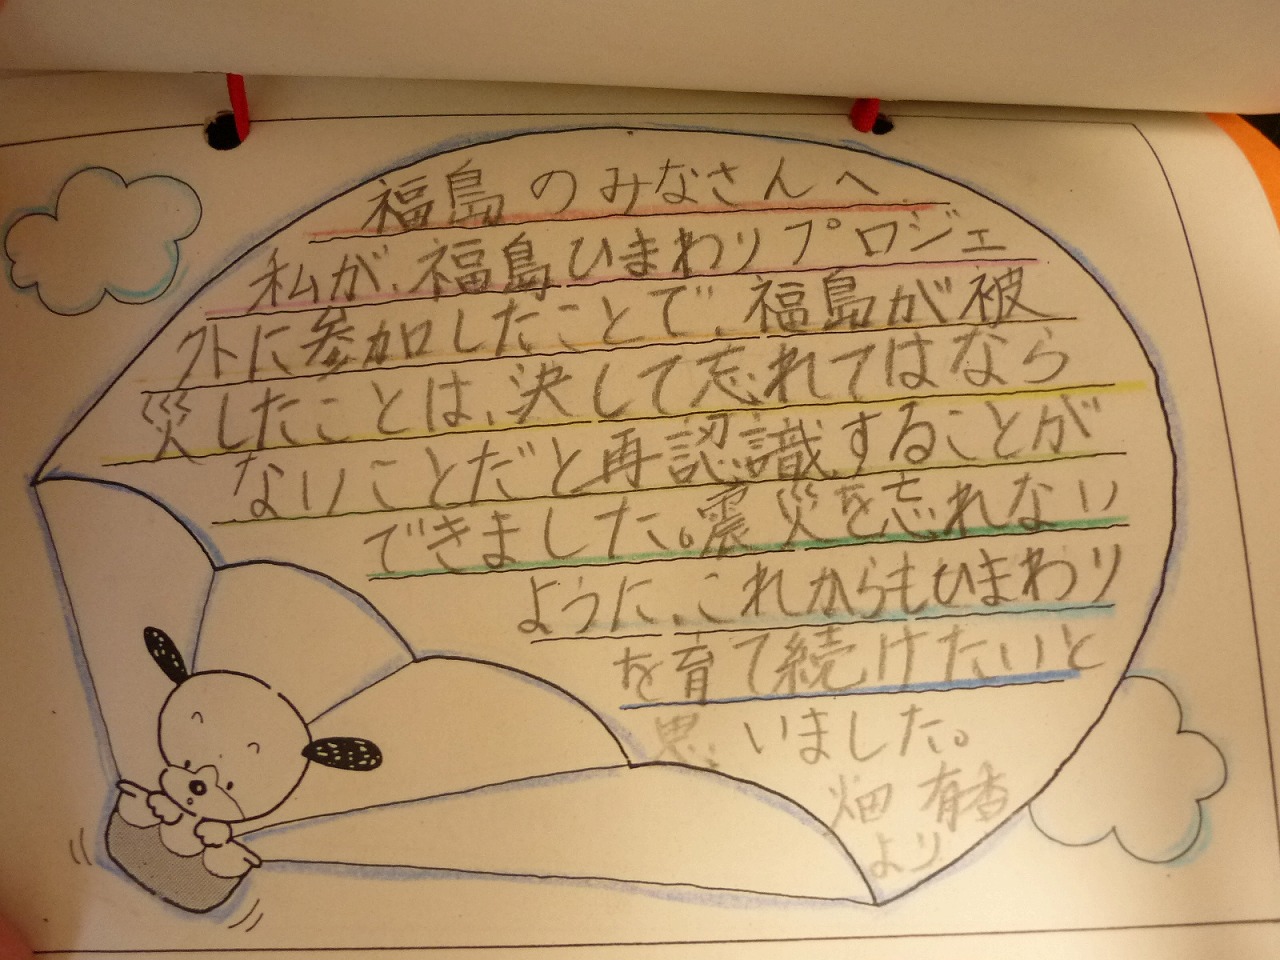 福島のみなさんへ
私が、福島ひまわりプロジェ
クトに参加したことで、福島が被
災したことは、決して忘れてはなら
ないことだと再認識することが
できました。震災を忘れない
ように、これからもひまわり
を育て続けたいと
思いました。
畑 有香
より